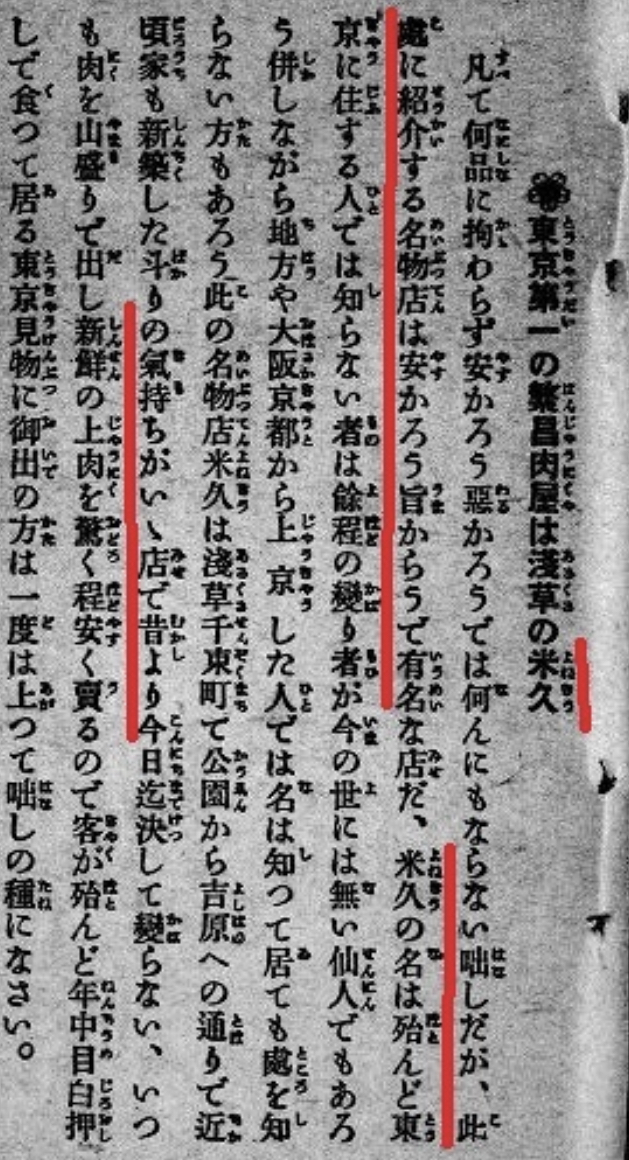 東京第一の繁昌肉屋は淺草の米久
凡て何品に拘わらず安かろう惡かろうでは何んにもならない咄しだが、此
處に紹介する名物店は安かろう旨からうで有名な店だ、米久の名は殆んど東
京に住する人では知らない者は餘程の變り者が今の世には無い仙人でもあろ
う併しながら地方や大阪京都から上京した人では名は知つて居ても處を知
らない方もあろう此の名物店米久は淺草千束町で公園から吉原への通りで近
頃家も新築した斗りの氣持ちがいゝ店で昔より今日迄決して變らない、いつ
も肉を山盛りで出し新鮮の上肉を驚く程安く賣るので客が殆んど年中目白押
しで食つて居る東京見物に御出の方は一度は上つて咄しの種になさい。